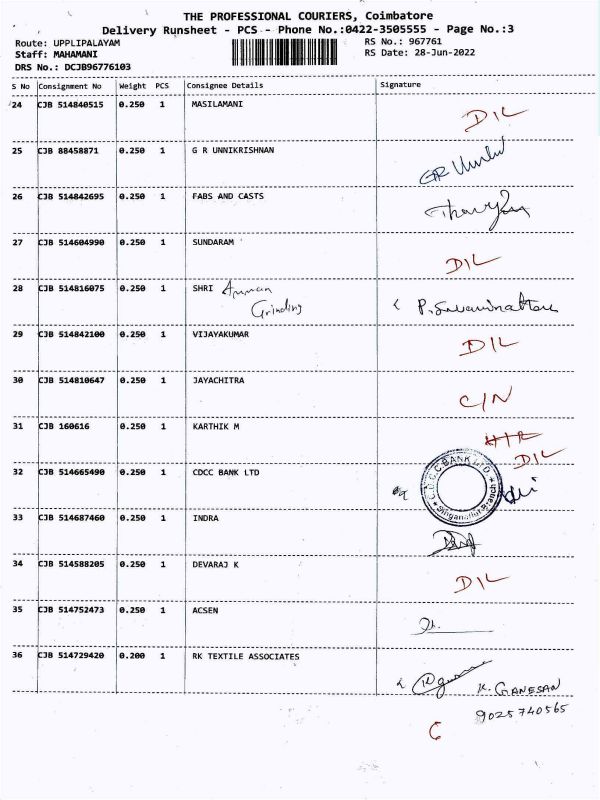 THE PROFESSIONAL COURIERS, Coimbatore
Delivery Runsheet - PCS - Phone No.:0422-3505555 - Page No.:3
Route: UPPLIPALAYAM RS No.: 967761
Staff: MAHAMANI RS Date: 28-Jun-2022
DRS No.: DCJB96776103
S No Consignment No Weight PCS Consignee Details Signature
24 CJB 514840515 0.250 1 MASILAMANI D/L
25 CJB 88458871 0.250 1 G R UNNIKRISHNAN
26 CJB 514842695 0.250 1 FABS AND CASTS
27 CJB 514604990 0.250 1 SUNDARAM D/L
28 CJB 514816075 0.250 1 SHRI Amman
Grinding
29 CJB 514842100 0.250 1 VIJAYAKUMAR D/L
30 CJB 514810647 0.250 1 JAYACHITRA C/N
31 CJB 160616 0.250 1 KARTHIK M
D/L
32 CJB 514665490 0.250 1 CDCC BANK LTD C.D.C.C BANK LTD. Singanallur Branch
33 CJB 514687460 0.250 1 INDRA
34 CJB 514588205 0.250 1 DEVARAJ K D/L
35 CJB 514752473 0.250 1 ACSEN
36 CJB 514729420 0.200 1 RK TEXTILE ASSOCIATES
K. GANESAN
9025740565